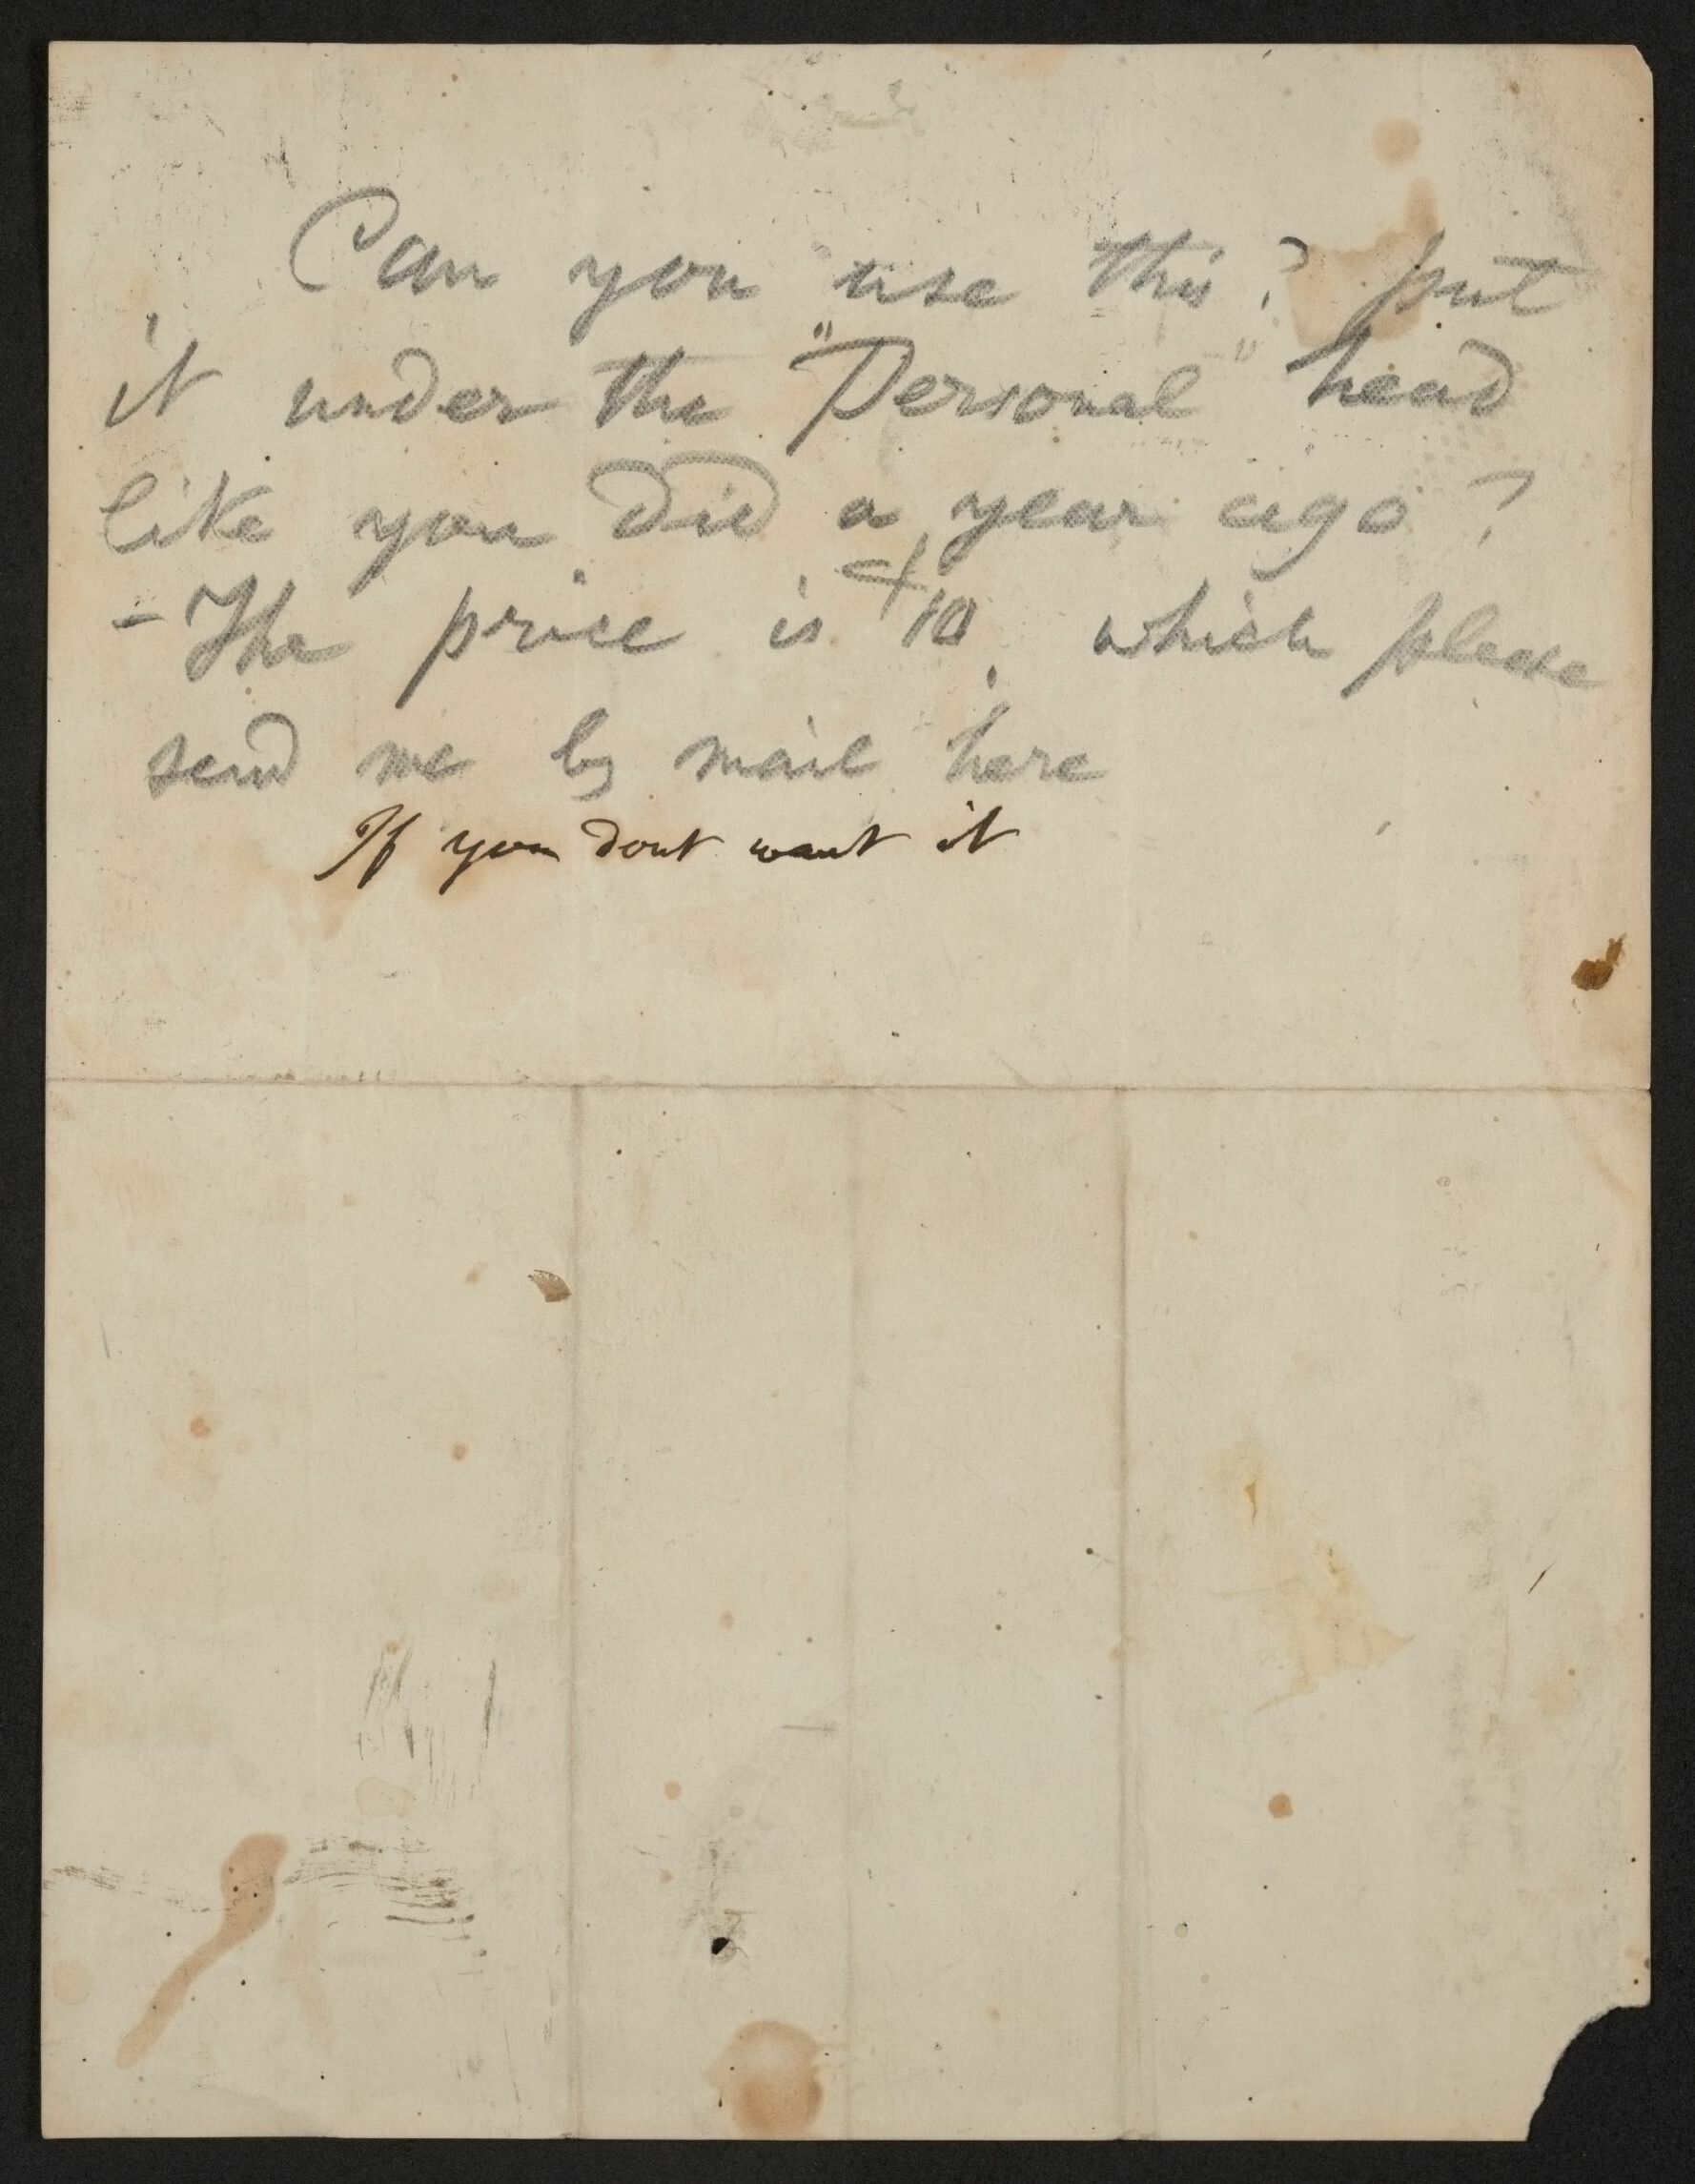 Can you use this? put
it under the "Personal" head
like you did a year ago?
– The price is $10. which please
send me by mail here
If you dont want it